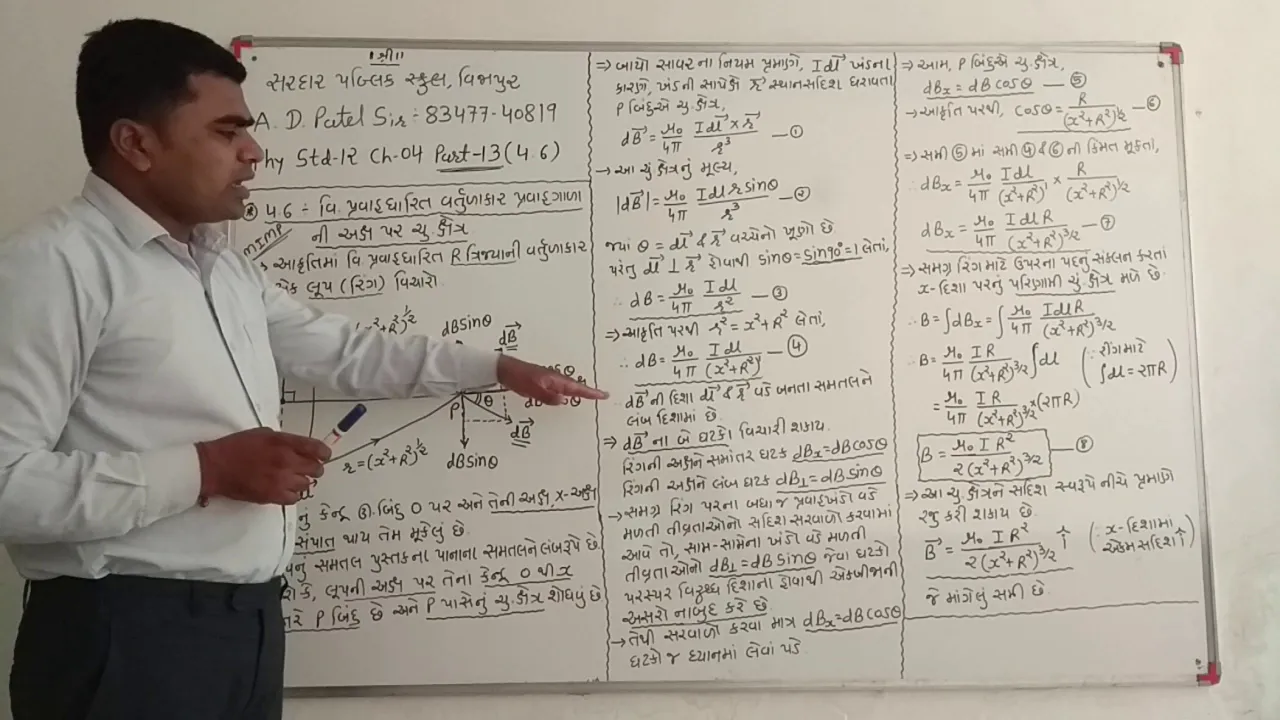 ॥ શ્રી ॥
સરદાર પબ્લિક સ્કુલ, વિજાપુર
A. D. Patel Sir : 83477-40819
Phy Std-12 Ch-04 Part-13 (4.6)
૪.6 :- વિ. પ્રવાહધારિત વર્તુળાકાર પ્રવાહગાળા
ની અક્ષ પર ચુ. ક્ષેત્ર
MIMP
આકૃતિમાં વિ. પ્રવાહધારિત R ત્રિજ્યાની વર્તુળાકાર
એક લૂપ (રિંગ) વિચારો.
dBsinθ
dB⃗
P
θ
dB⃗
dBsinθ
r = (x²+R²)^½
નું કેન્દ્ર ઊ.બિંદુ O પર અને તેની અક્ષ, X-અક્ષ
સંપાત થાય તેમ મૂકેલું છે.
નું સમતલ પુસ્તકના પાનાના સમતલને લંબરૂપે છે.
કે, લૂપની અક્ષ પર તેના કેન્દ્ર O થી x
અંતરે P બિંદુ છે અને P પાસેનું ચુ. ક્ષેત્ર શોધવું છે
⇒ બાયો સાવરના નિયમ પ્રમાણે, Idl⃗ ખંડના
કારણે, ખંડની સાપેક્ષે r⃗ સ્થાનસદિશ ધરાવતા
P બિંદુએ ચુ. ક્ષેત્ર,
dB⃗ = μ₀/4π Idl⃗ × r⃗/r³ — ①
→ આ ચુ. ક્ષેત્રનું મૂલ્ય,
|dB⃗| = μ₀/4π Idl r sinθ/r³ — ②
જ્યાં θ = dl⃗ & r⃗ વચ્ચેનો ખૂણો છે
પરંતુ dl⃗ ⊥ r⃗ હોવાથી sinθ = sin90° = 1 લેતાં,
∴ dB = μ₀/4π Idl/r² — ③
⇒ આકૃતિ પરથી r² = x² + R² લેતાં,
∴ dB = μ₀/4π Idl/(x²+R²) — ④
dB⃗ ની દિશા dl⃗ & r⃗ વડે બનતા સમતલને
લંબ દિશામાં છે.
⇒ dB⃗ ના બે ઘટકો વિચારી શકાય.
રિંગની અક્ષને સમાંતર ઘટક dBx = dBcosθ
રિંગની અક્ષને લંબ ઘટક dB⊥ = dBsinθ
→ સમગ્ર રિંગ પરના બધા જ પ્રવાહખંડો વડે
મળતી તીવ્રતાઓનો સદિશ સરવાળો કરવામાં
આવે તો, સામ-સામેના ખંડો વડે મળતી
તીવ્રતાઓનો dB⊥ = dBsinθ જેવા ઘટકો
પરસ્પર વિરુધ્ધ દિશાના હોવાથી એકબીજાની
અસરો નાબુદ કરે છે.
→ તેથી સરવાળો કરવા માત્ર dBx = dBcosθ
ઘટકો જ ધ્યાનમાં લેવાં પડે.
⇒ આમ, P બિંદુએ ચુ. ક્ષેત્ર,
dBx = dBcosθ — ⑤
→ આકૃતિ પરથી, cosθ = R/(x²+R²)^½ — ⑥
⇒ સમી ⑤ માં સમી ④ & ⑥ ની કિંમત મૂકતા,
∴ dBx = μ₀/4π Idl/(x²+R²)¹ × R/(x²+R²)^1/2
dBx = μ₀/4π IdlR/(x²+R²)^3/2 — ⑦
⇒ સમગ્ર રિંગ માટે ઉપરના પદનું સંકલન કરતાં
x-દિશા પરનું પરિણામી ચું. ક્ષેત્ર મળે છે.
∴ B = ∫dBx = ∫ μ₀/4π IdlR/(x²+R²)^3/2
∴ B = μ₀/4π IR/(x²+R²)^3/2 ∫dl (∵ રીંગ માટે ∫dl = 2πR)
= μ₀/4π IR/(x²+R²)^3/2 × (2πR)
B = μ₀IR²/2(x²+R²)^3/2 — ⑧
⇒ આ ચુ. ક્ષેત્રને સદિશ સ્વરૂપે નીચે પ્રમાણે
રજુ કરી શકાય છે.
B⃗ = μ₀IR²/2(x²+R²)^3/2 î (∵ x-દિશામાં એકમ સદિશ î)
જે માંગેલું સમી છે.